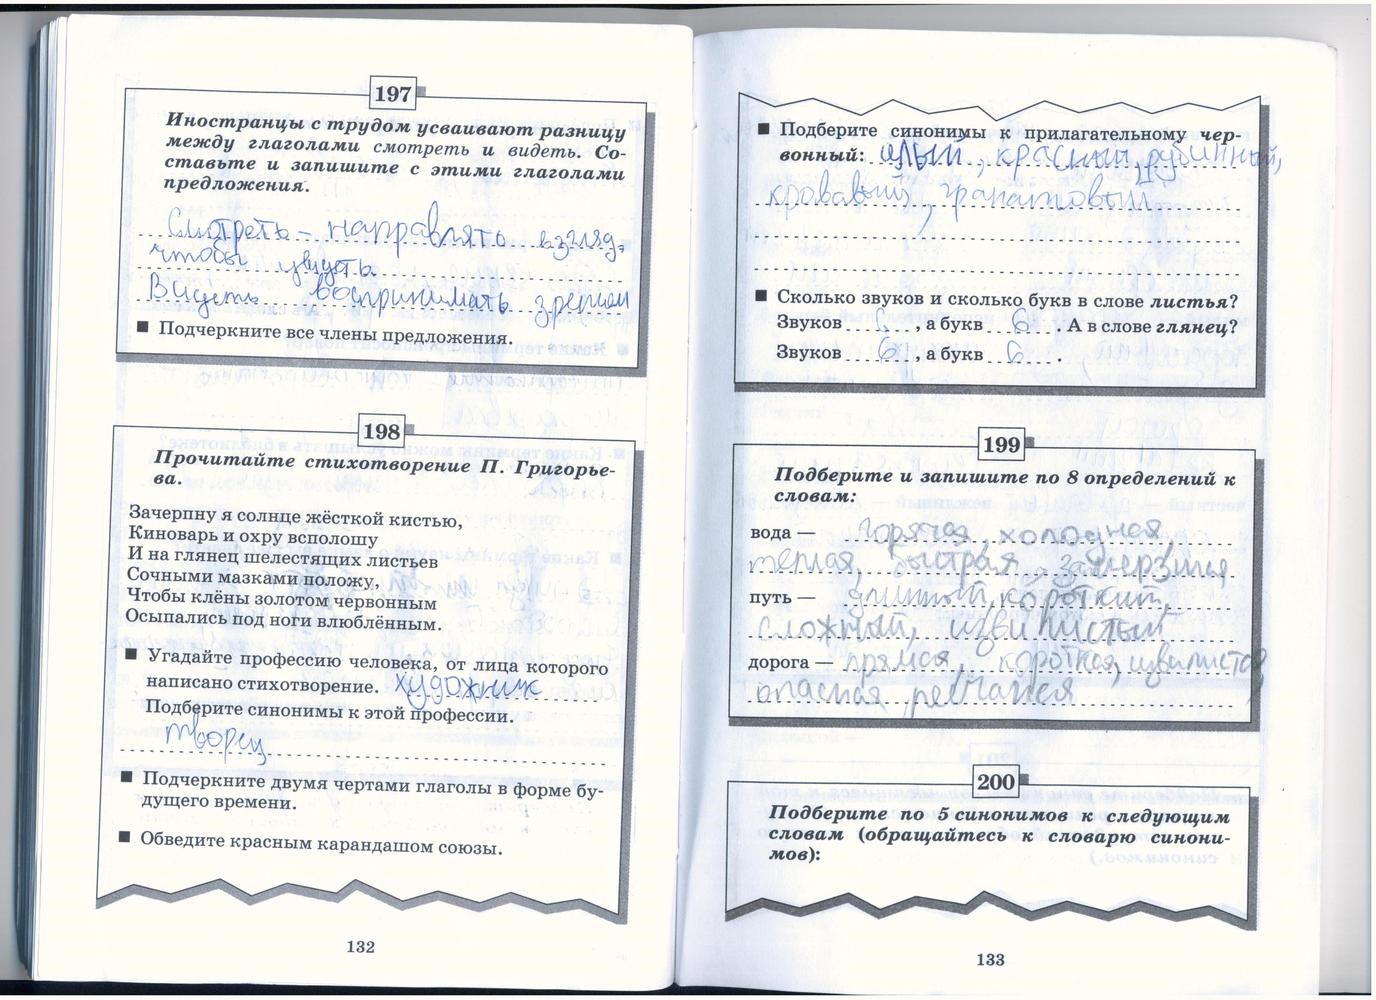 197
Иностранцы с трудом усваивают разницу
между глаголами смотреть и видеть. Со-
ставьте и запишите с этими глаголами
предложения.
Смотреть – направлять взгляд,
чтобы увидеть
Видеть воспринимать зрением
■ Подчеркните все члены предложения.
198
Прочитайте стихотворение П. Григорье-
ва.
Зачерпну я солнце жёсткой кистью,
Киноварь и охру всполошу
И на глянец шелестящих листьев
Сочными мазками положу,
Чтобы клёны золотом червонным
Осыпались под ноги влюблённым.
■ Угадайте профессию человека, от лица которого
написано стихотворение. художник
Подберите синонимы к этой профессии.
творец
■ Подчеркните двумя чертами глаголы в форме бу-
дущего времени.
■ Обведите красным карандашом союзы.
132
■ Подберите синонимы к прилагательному чер-
вонный: алый, красный, рубинный,
кровавый, гранатовый
■ Сколько звуков и сколько букв в слове листья?
Звуков 6, а букв 6. А в слове глянец?
Звуков 6, а букв 6.
199
Подберите и запишите по 8 определений к
словам:
вода — горячая, холодная
теплая, быстрая, замерзшая
путь — длинный, короткий,
сложный, извилистый
дорога — прямая, короткая, извилистая
опасная,
200
Подберите по 5 синонимов к следующим
словам (обращайтесь к словарю синони-
мов):
133